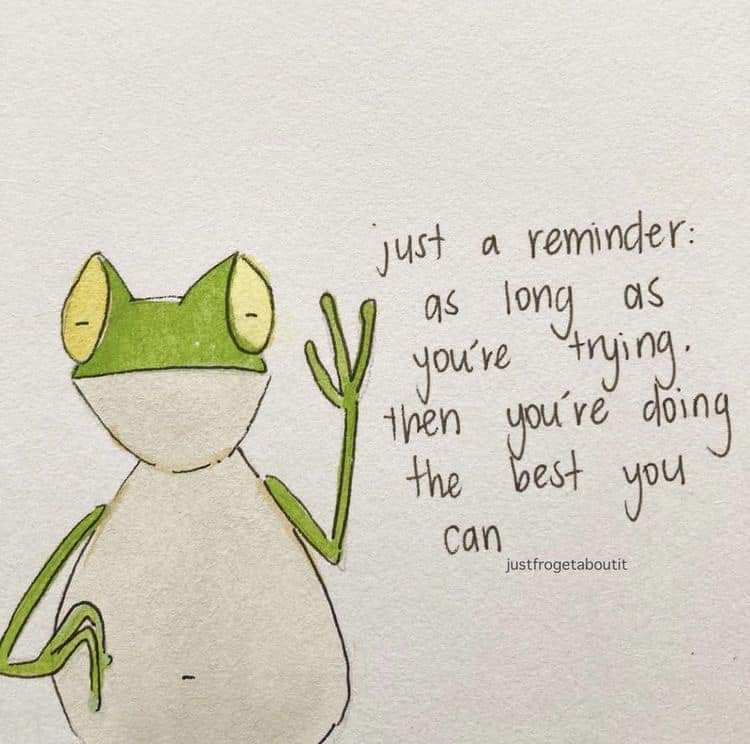 just a reminder:
as long as
you're trying.
then you're doing
the best you
can
justfrogetaboutit